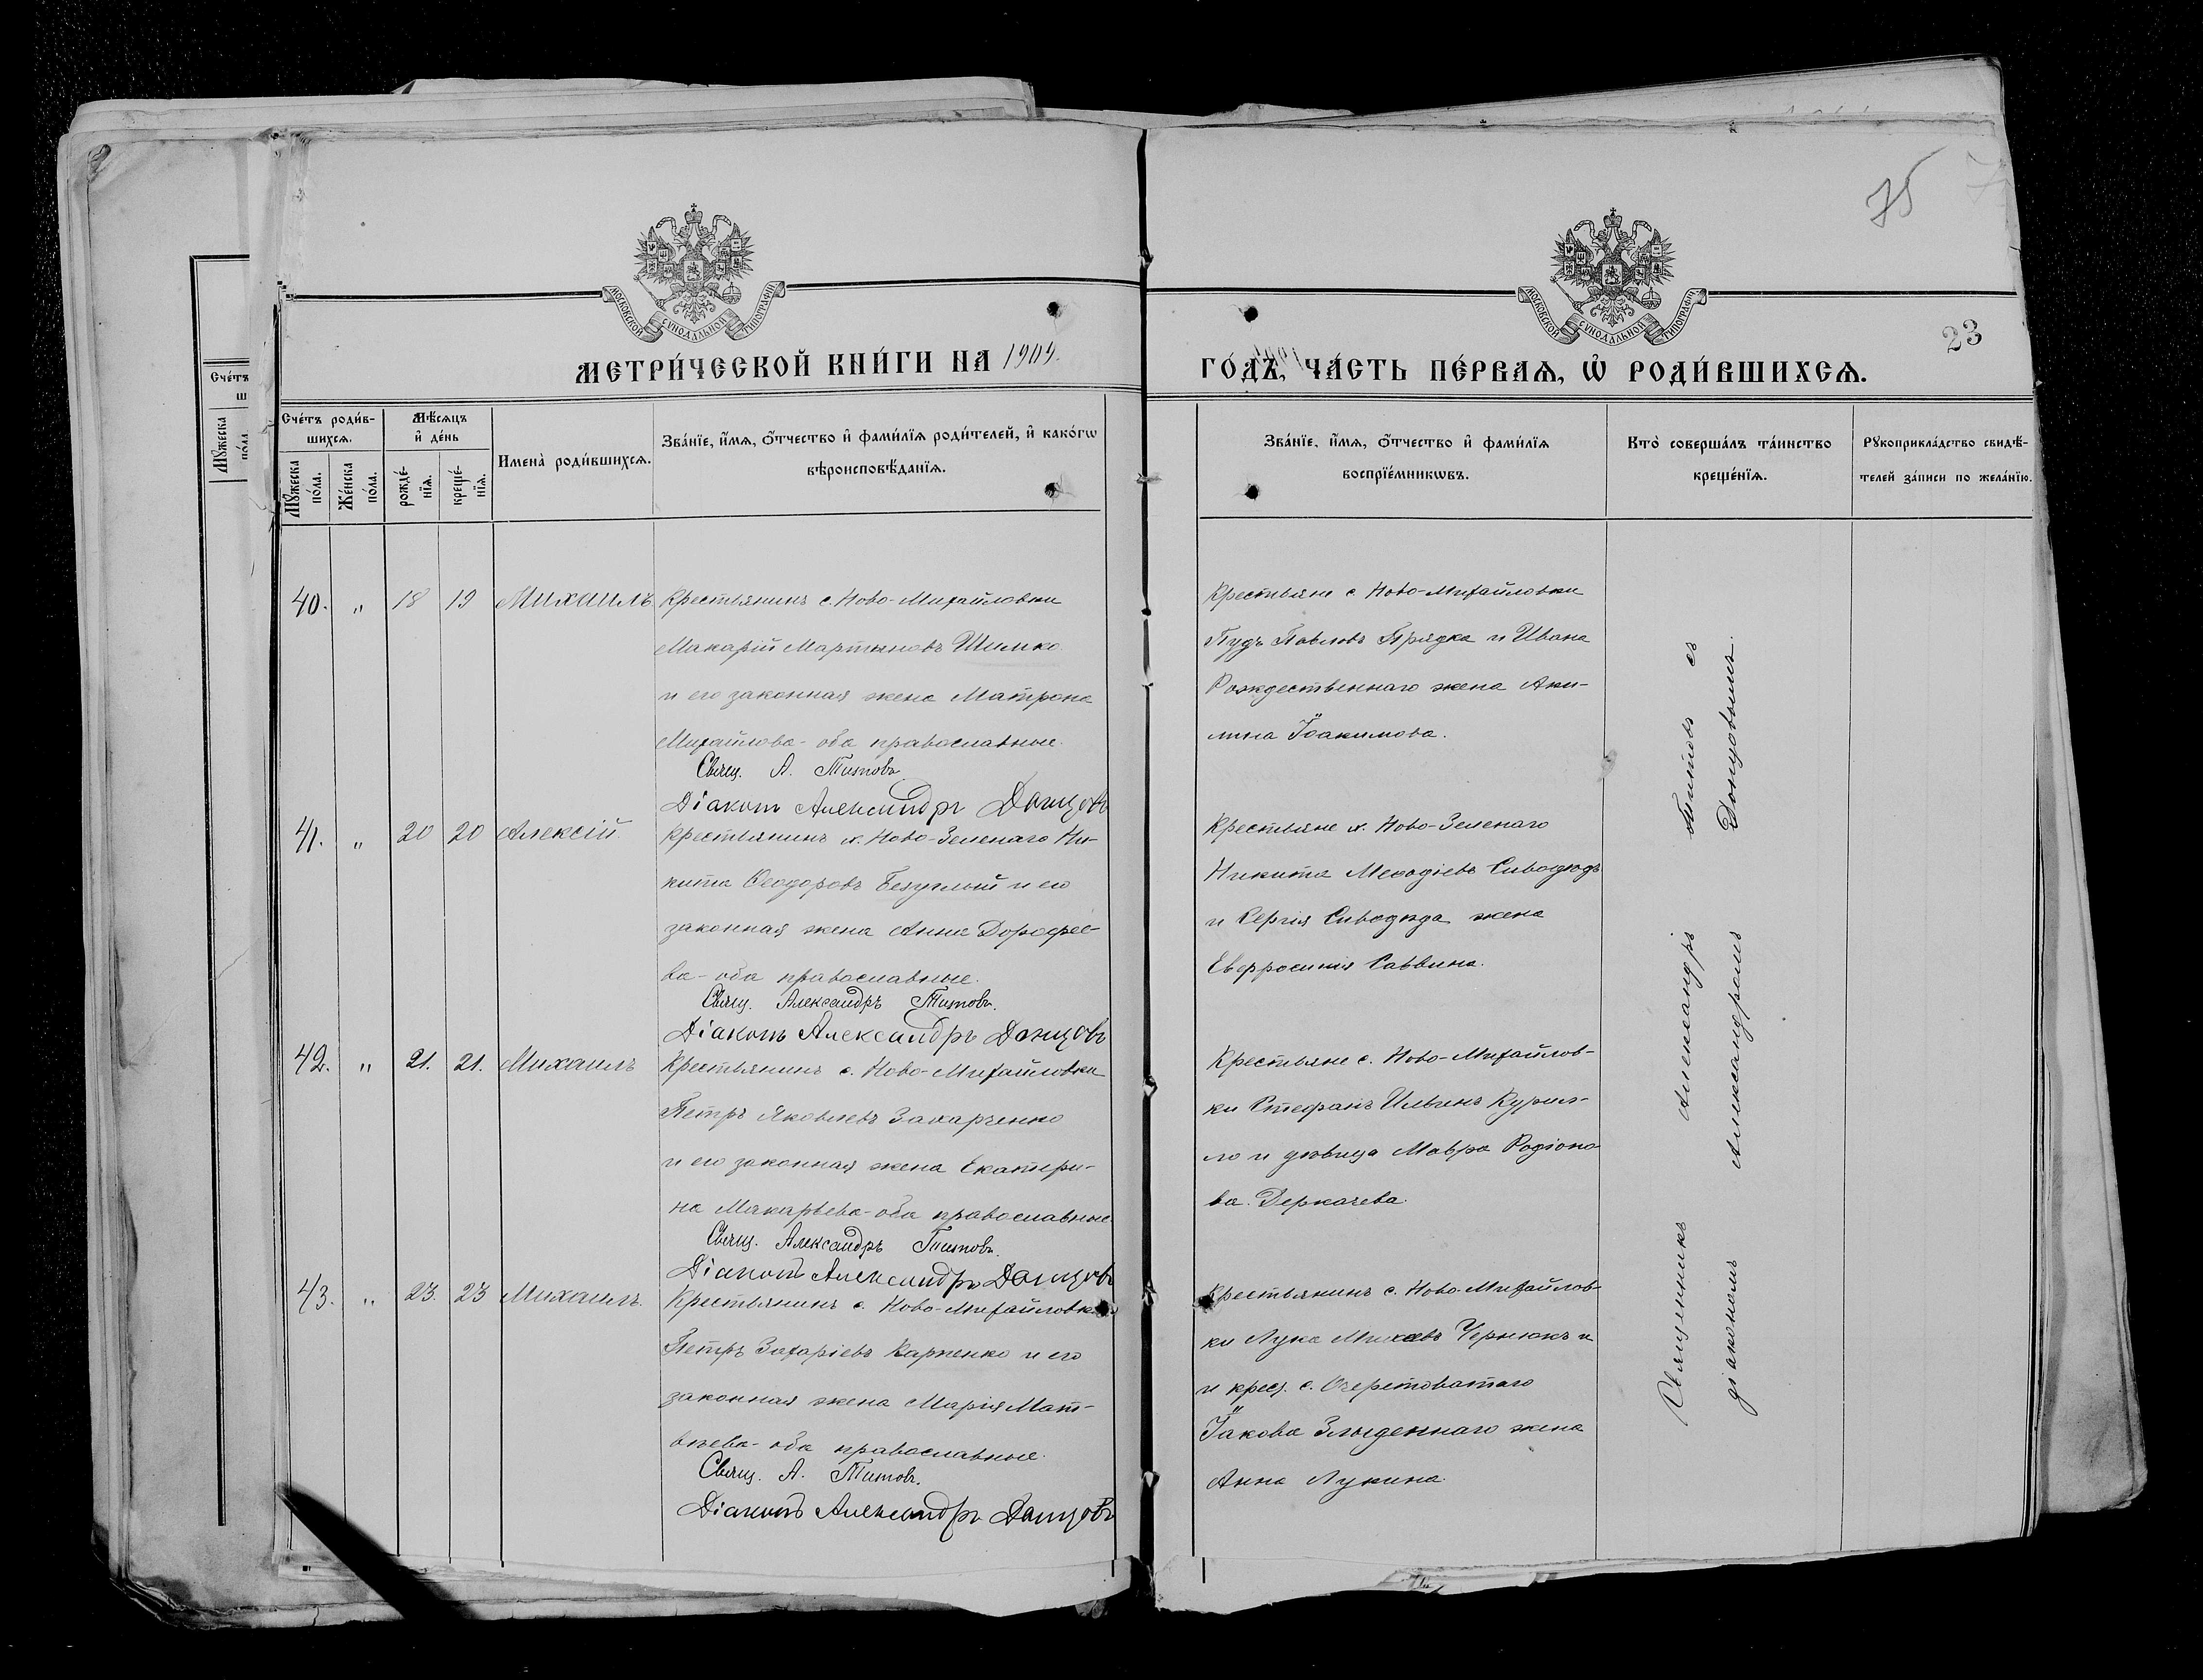 75
МОСКОВСКОЙ СѴНОДАЛЬНОЙ ТИПОГРАФІИ
МОСКОВСКОЙ СѴНОДАЛЬНОЙ ТИПОГРАФІИ
23
МЕТРИ́ЧЕСКОЙ КНИ́ГИ НА 1909.
ГО́ДЪ, ЧА́СТЬ ПЕ́РВАѦ, Ѡ҆ РОДИ́ВШИХСѦ.
Сче́тъ
ш
Мꙋ́жеска по́ла
Сче́тъ роди́в-
шихсѧ.
Мꙋ́жеска по́ла.
Же́нска по́ла.
Мѣ́сѧцъ
и҆ де́нь
рожде́-
нїѧ.
креще́-
нїѧ.
Имена̀ роди́вшихсѧ.
Зва́нїе, и҆́мѧ, ѻ҆́тчество и҆ фами́лїѧ роди́телей, и҆ како́гѡ
вѣроисповѣ́данїѧ.
Зва́нїе, и҆́мѧ, ѻ҆́тчество и҆ фами́лїѧ
воспрїе́мникѡвъ.
Кто̀ соверша́лъ та́инство
креще́нїѧ.
Рꙋкоприкла́дство свидѣ́-
телей за́писи по жела́нїю.
40. " 18 19 Михаилъ
Крестьянинъ с. Ново-Михайловки
Макарій Мартыновъ Шимко
и его законная жена Матрона
Михайлова - оба православные.
Свящ. А. Титовъ
Діаконъ Александръ Донцовъ
Крестьяне с Ново-Михайловки
Пудъ Павловъ Прядка и Ивана
Рождественнаго жена Аки-
лина Іоакимова.
41. " 20 20 Алексій
Крестьянинъ х. Ново-Зеленаго Ни-
кита Ѳеодоровъ Безуглый и его
законная жена Анна Дорофее-
ва - оба православные.
Свящ. Александръ Титовъ.
Діаконъ Александръ Донцовъ
Крестьяне х. Ново-Зеленаго
Никита Меѳодіевъ Сиводѣдъ
и Сергія Сиводѣда жена
Евфросинія Саввина.
42. " 21. 21. Михаилъ
Крестьянинъ с. Ново-Михайловки
Петръ Яковлевъ Захарченко
и его законная жена Екатери-
на Макарьева - оба православные
Свящ. Александръ Титовъ.
Діаконъ Александръ Донцовъ
Крестьяне с. Ново-Михайлов-
ки Стефанъ Ильинъ Курил-
ло и дѣвица Мавра Родіоно-
ва Деркачева.
43. " 23. 23 Михаилъ.
Крестьянинъ с. Ново-Михайловки
Петръ Захаріевъ Карпенко и его
законная жена Марія Мат-
вѣева - оба православные.
Свящ. А. Титовъ.
Діаконъ Александръ Донцовъ
Крестьянинъ с. Ново-Михайлов-
ки Лука Михеевъ Чернюкъ и
и крес. с. Очеретоватаго
Іакова Злыденнаго жена
Анна Лукина.
Священникъ Александръ Титовъ съ
діакономъ Александромъ Донцовымъ.